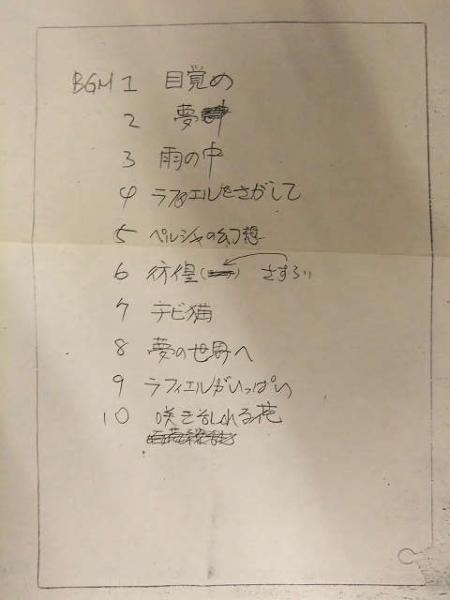 BGM 1 目覚め
2 夢
3 雨の中
4 ラファエルをさがして
5 ペルシャの幻想
6 彷徨( ) さすらい
7 チビ猫
8 夢の世界へ
9 ラフィエルがいっぱい
10 咲きみだれる花